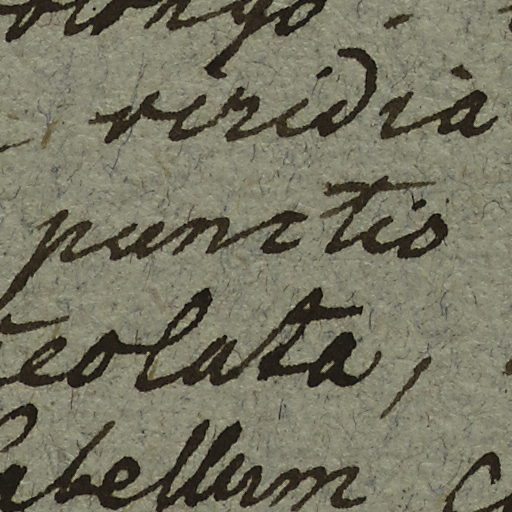 viridia
punctis
eolata,
Labellum